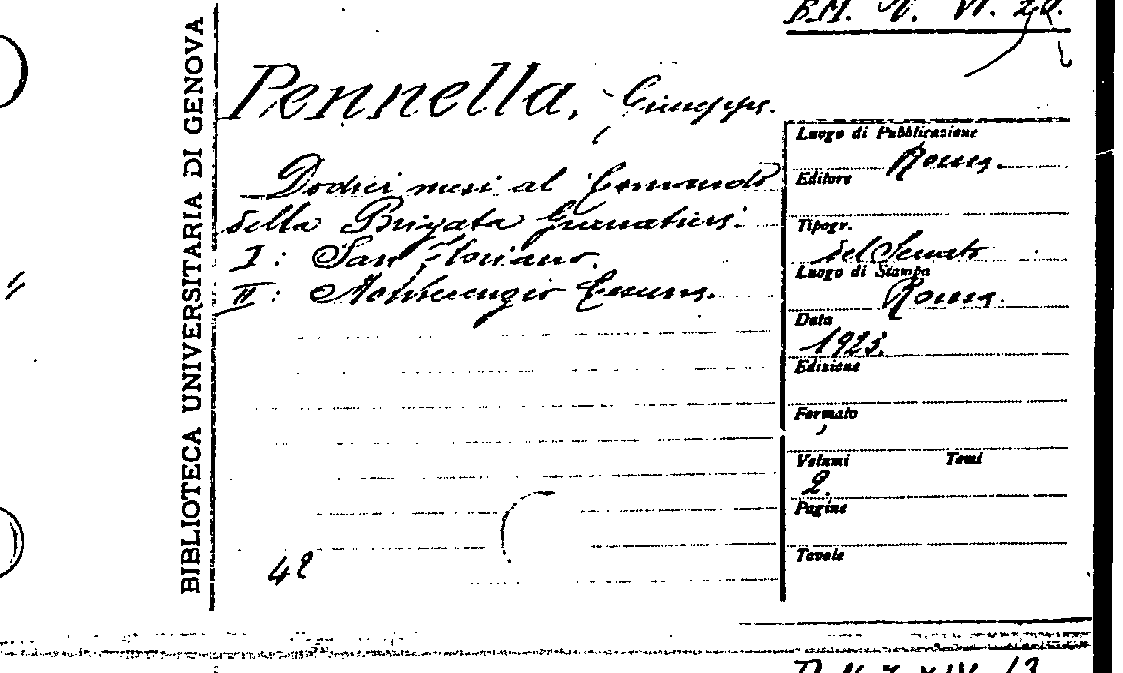 B.M. V. VI. 20.
BIBLIOTECA UNIVERSITARIA DI GENOVA
Pennella, Giuseppe.
Dodici mesi al Comando
della Brigata Granatieri.
I: San Floriano.
II: Montecengio Cesuna.
42
Luogo di Pubblicazione
Roma.
Editore
Tipogr.
del Senato
Luogo di Stampa
Roma.
Data
1923.
Edizione
Formato
Volumi Tomi
2.
Pagine
Tavole